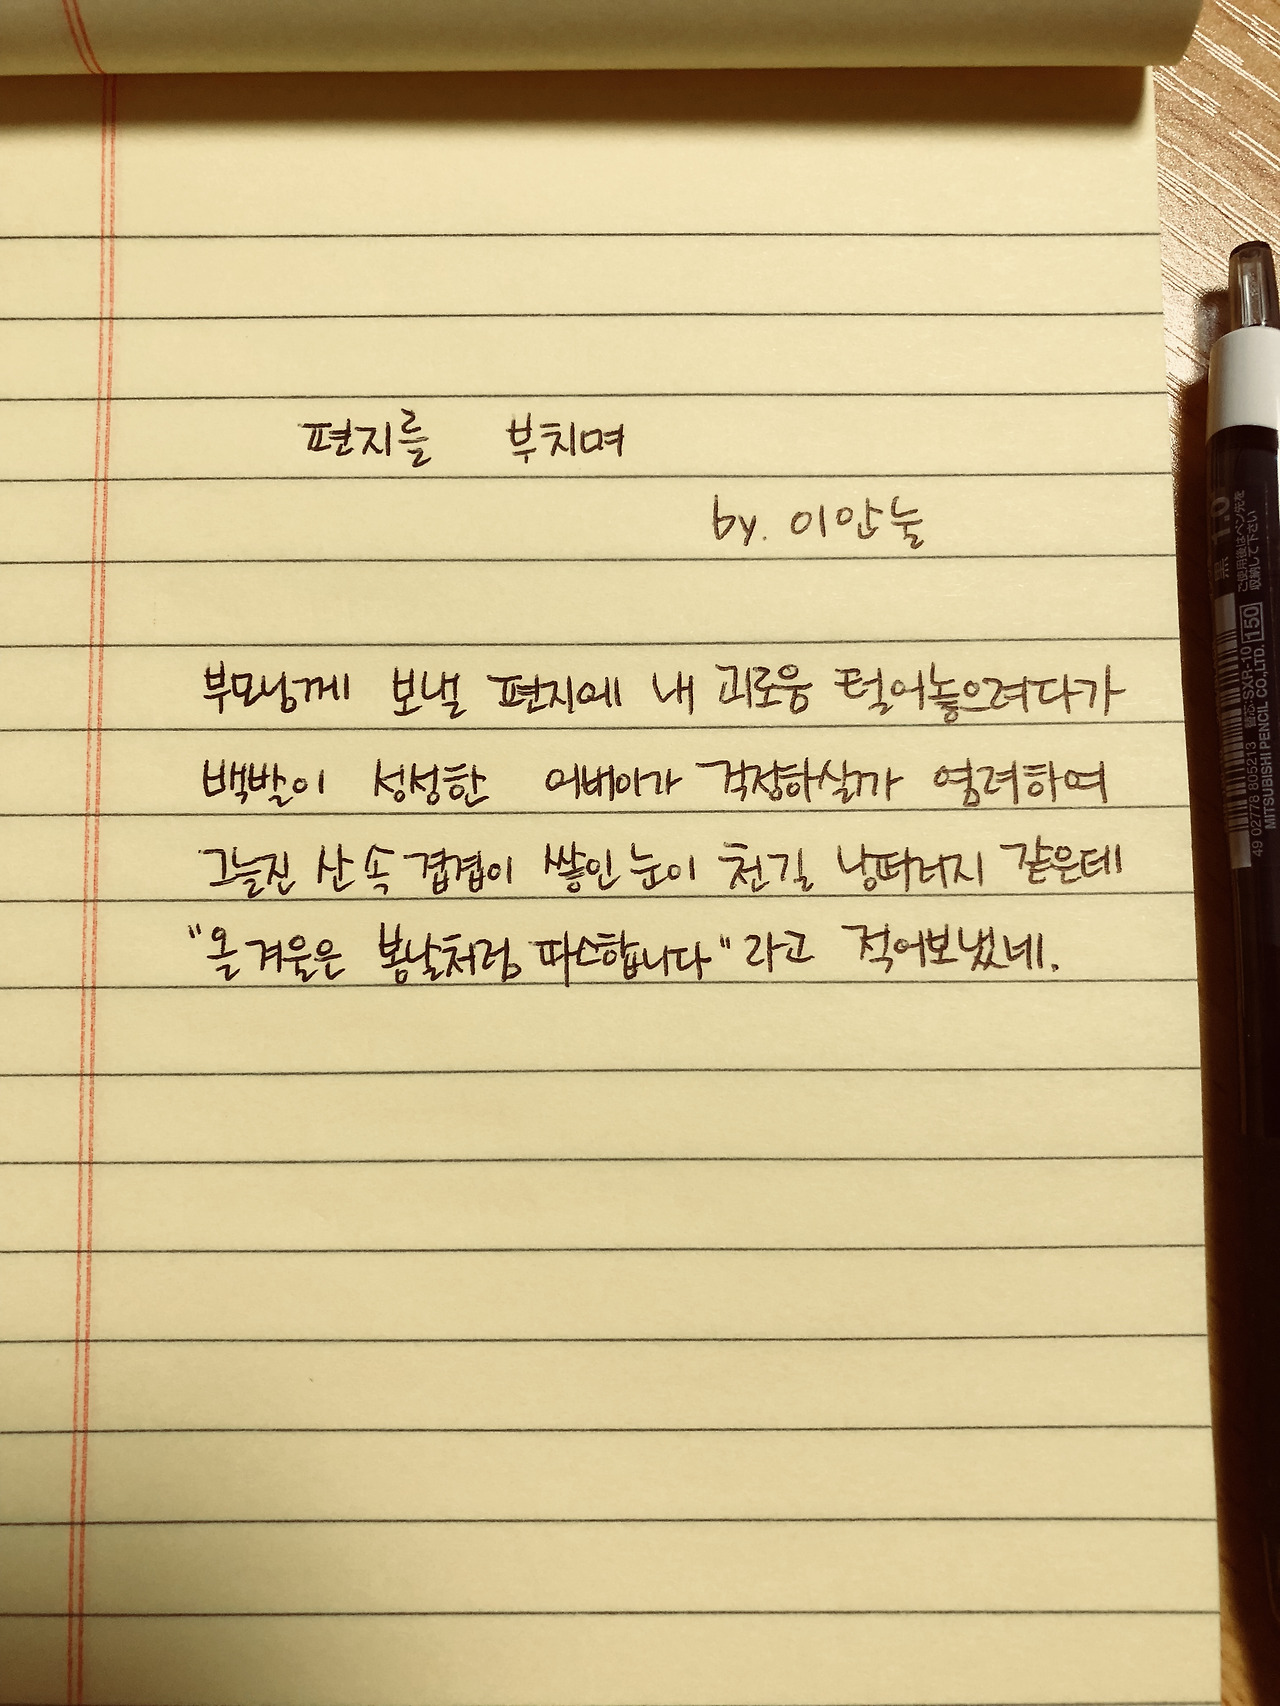 편지를 부치며
by. 이안눌
부모님께 보낼 편지에 내 괴로움 털어놓으려다가
백발이 성성한 어버이가 걱정하실까 염려하여
그늘진 산 속 겹겹이 쌓인 눈이 천길 낭떠러지 같은데
"올 겨울은 봄날처럼 따스합니다"라고 적어보냈네.
黒 1.0
ご使用後はペン先を
収納して下さい
替芯:SXR-10 150
49 02778 805213
MITSUBISHI PENCIL CO.,LTD.